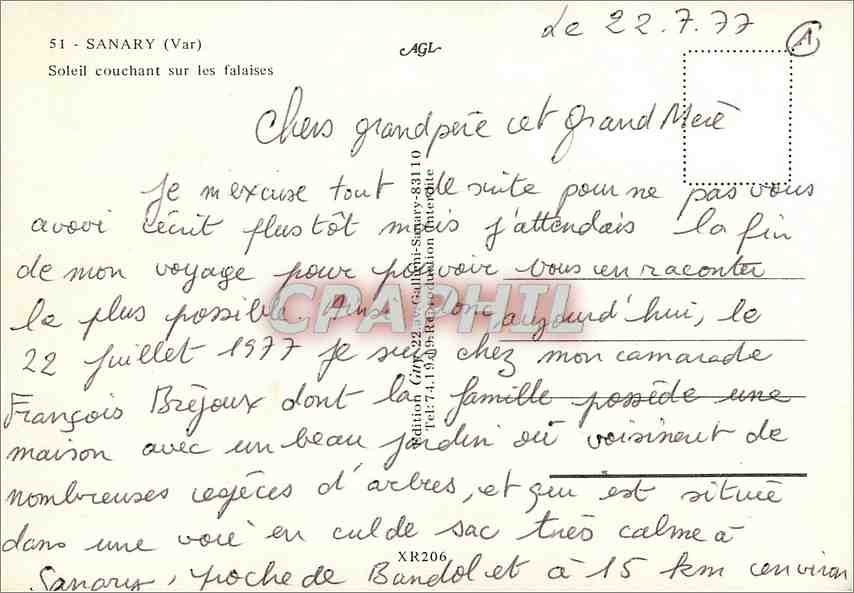 Le 22.7.77
A
51 - SANARY (Var)
AGL
Soleil couchant sur les falaises
Chers grandpère et Grand Mère
Je m'excuse tout de suite pour ne pas vous
avoir écrit plus tôt mais j'attendais la fin
de mon voyage pour pouvoir vous en raconter
le plus possible. Ainsi donc, aujourd'hui, le
22 Juillet 1977 je suis chez mon camarade
François Bréjoux dont la famille possède une
maison avec un beau jardin où voisinent de
nombreuses espèces d'arbres, et qui est située
dans une voie en cul de sac très calme à
Sanary, proche de Bandol et à 15 km environ
Edition Guy-22,av.Gallieni-Sanary-83110
Tel:74.19.09-Reproduction Interdite
XR206
CPAPHIL